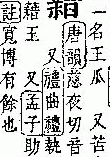 一名王瓜 又苦
藉
唐韻慈夜切音
又禮曲禮執
藉王 又孟子助
註寬博有餘也